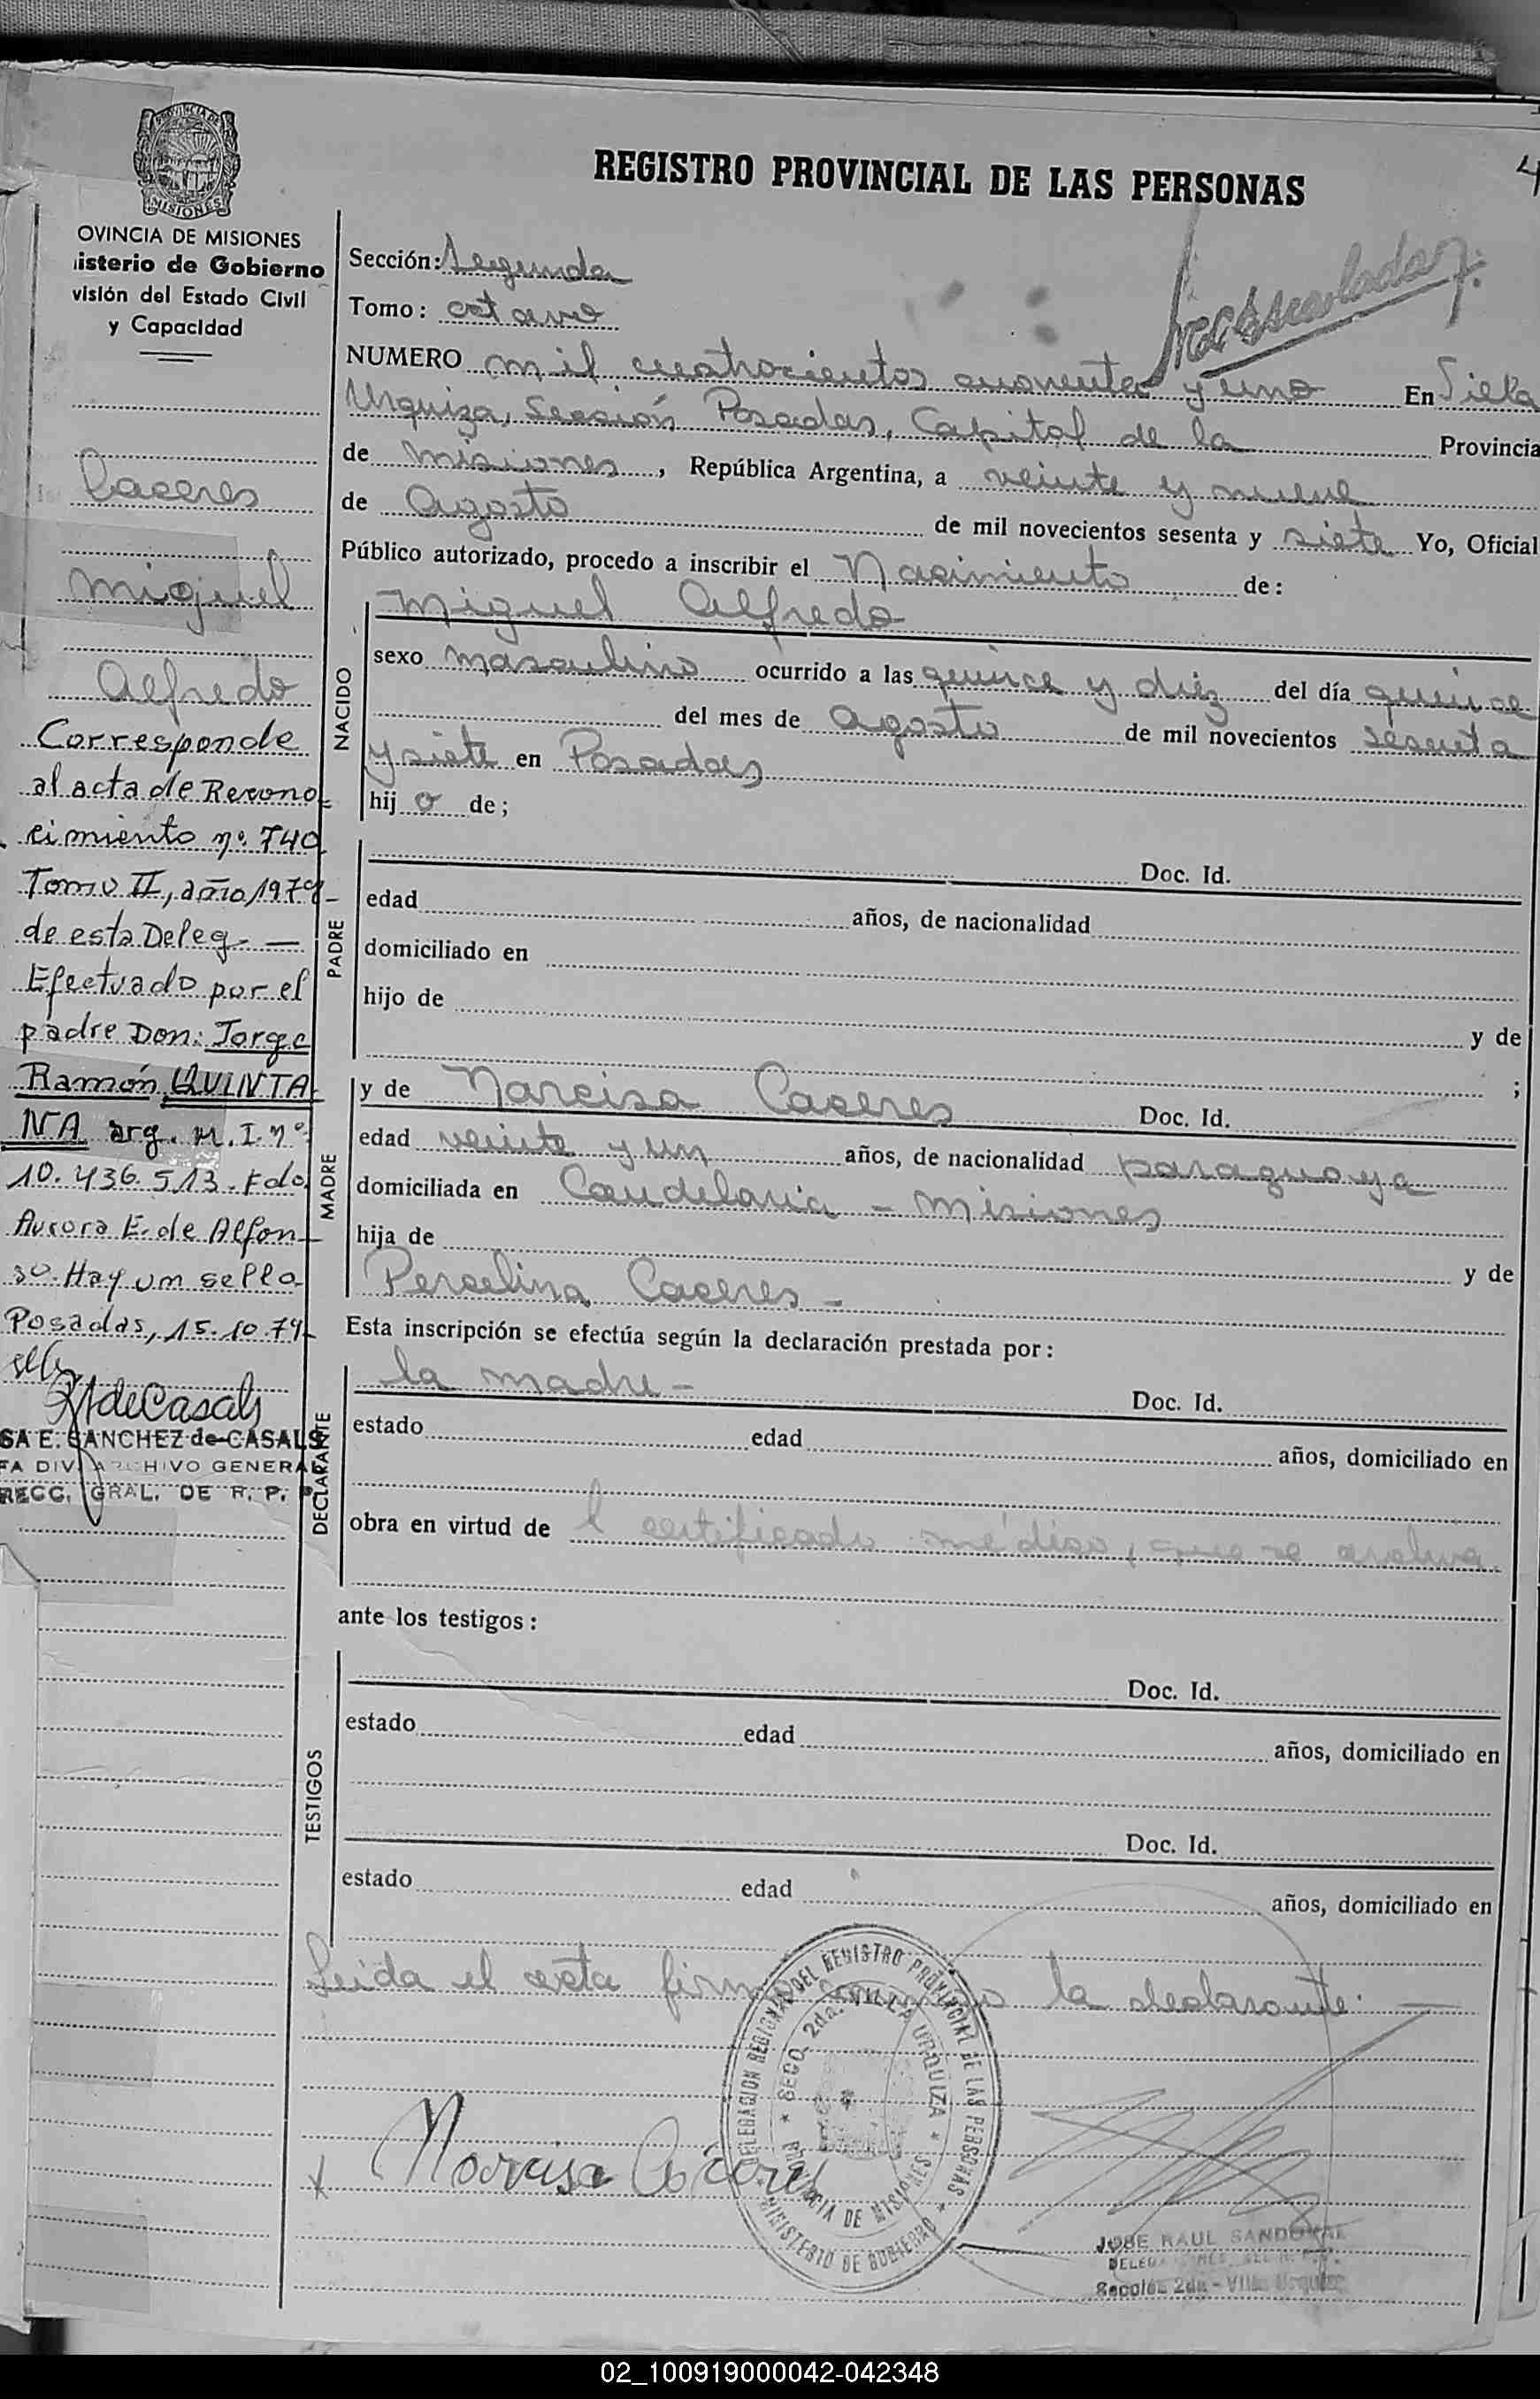 REGISTRO PROVINCIAL DE LAS PERSONAS
4
PROVINCIA DE
MISIONES
OVINCIA DE MISIONES
isterio de Gobierno
visión del Estado Civil
y Capacidad
Caceres
Miguel
Alfredo
Corresponde
al acta de Recono-
cimiento nº. 740
Tomo II, año 1979-
de esta Deleg. —
Efectuado por el
padre Don: Jorge
Ramón QUINTA-
NA arg. M. I. nº
10.436.513. Fdo.
Aurora E. de Alfon-
so. Hay un sello.
Posadas, 15.10.79-
SA E. SANCHEZ de CASALS
FA DIV. ARCHIVO GENERAL
RECC. GRAL. DE R. P. P.
Sección: Segunda
Tomo: octavo
NUMERO mil cuatrocientos cuarenta y uno En Villa
Urquiza, Sección Posadas, Capital de la Provincia
de Misiones, República Argentina, a veinte y nueve
de Agosto de mil novecientos sesenta y siete Yo, Oficial
Público autorizado, procedo a inscribir el Nacimiento de:
NACIDO
Miguel Alfredo
sexo masculino ocurrido a las quince y diez del día quince
del mes de Agosto de mil novecientos sesenta
y siete en Posadas
hijo de;
PADRE
Doc. Id.
edad años, de nacionalidad
domiciliado en
hijo de
y de
;
MADRE
y de Narcisa Caceres Doc. Id.
edad veinte y un años, de nacionalidad paraguaya
domiciliada en Candelaria - Misiones
hija de y de
Percelina Caceres -
Esta inscripción se efectúa según la declaración prestada por:
DECLARANTE
la madre - Doc. Id.
estado edad años, domiciliado en
obra en virtud de l certificado médico, que se archiva.
ante los testigos:
TESTIGOS
Doc. Id.
estado edad años, domiciliado en
Doc. Id.
estado edad años, domiciliado en
Leida el acta firma conmigo la declarante. —
DELEGACION REGIONAL DEL REGISTRO PROVINCIAL DE LAS PERSONAS
SECC. 2da. VILLA URQUIZA
PROVINCIA DE MISIONES
MINISTERIO DE GOBIERNO
Narcisa Cáceres
JOSE RAUL SANDOVAL
Sección 2da - Villa Urquiza
02_100919000042-042348